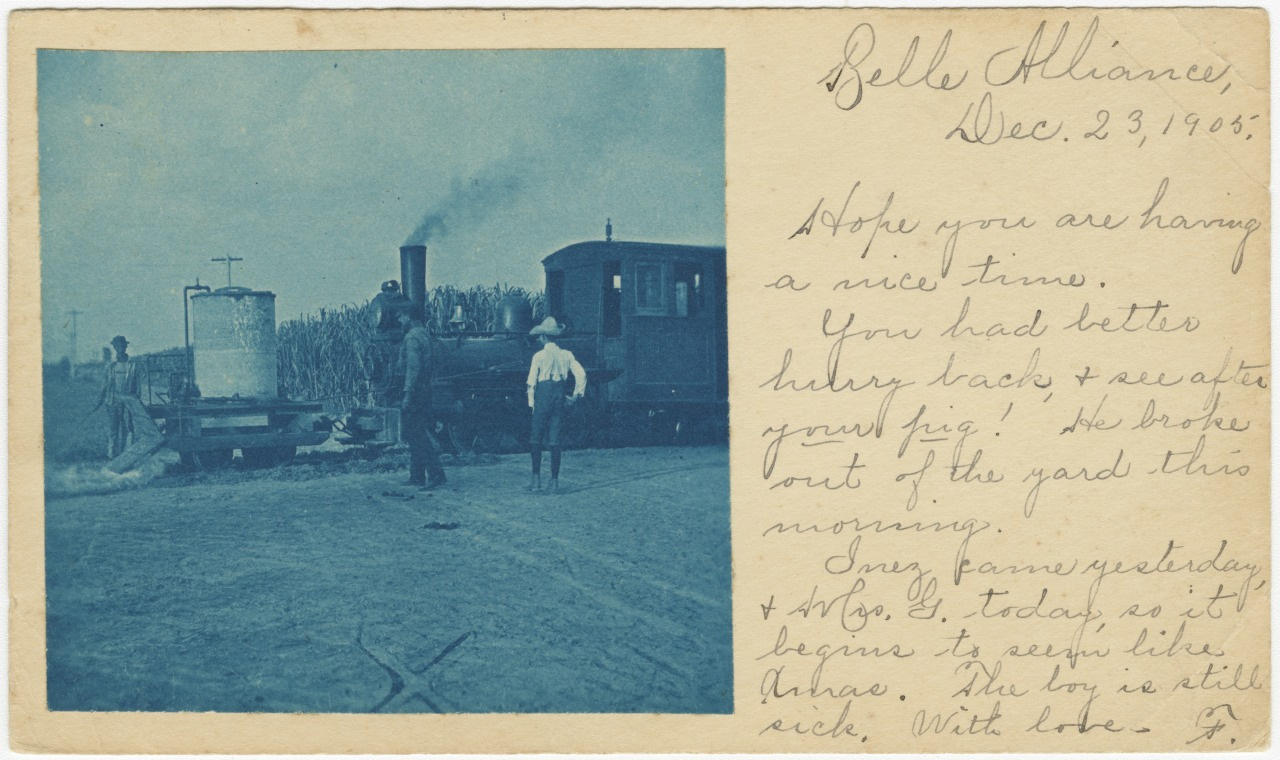 Belle Alliance,
Dec. 23, 1905.
Hope you are having
a nice time.
You had better
hurry back, & see after
your pig! He broke
out of the yard this
morning.
Inez came yesterday,
& Mrs. G. today, so it
begins to seem like
Xmas. The boy is still
sick. With love - F.